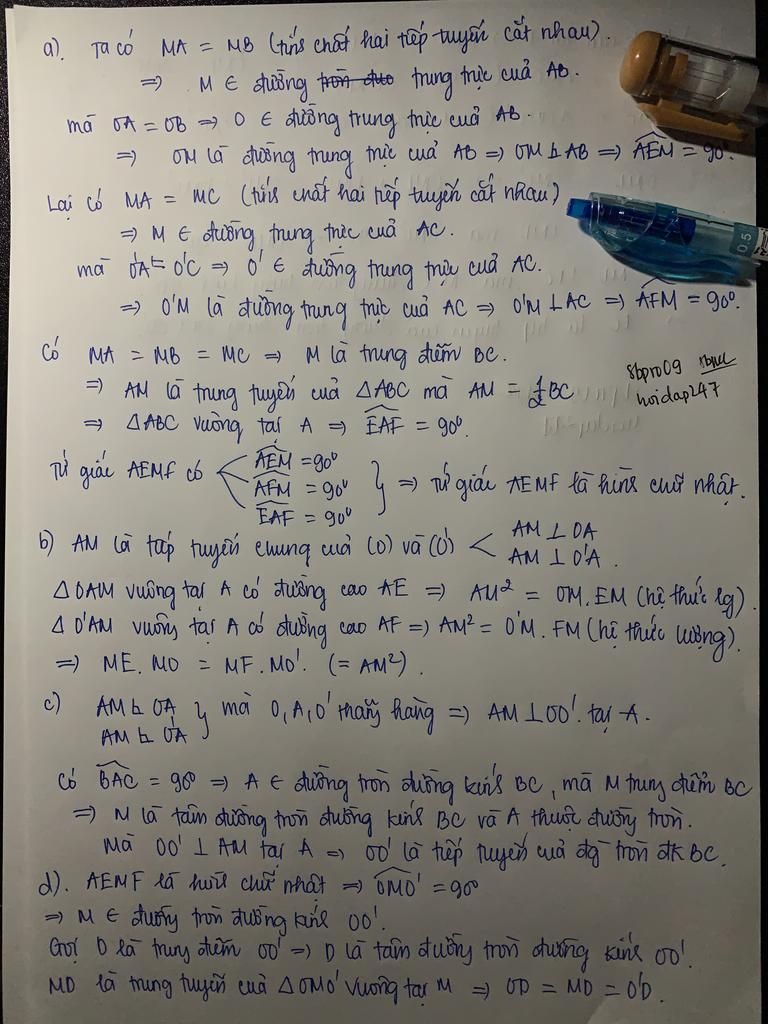 a). Ta có MA = MB (tính chất hai tiếp tuyến cắt nhau).
=> M ∈ đường trung trực của AB.
mà OA = OB => O ∈ đường trung trực của AB.
=> OM là đường trung trực của AB => OM ⊥ AB => \widehat{AEM} = 90°.
Lại có MA = MC (tính chất hai tiếp tuyến cắt nhau)
=> M ∈ đường trung trực của AC.
mà O'A = O'C => O' ∈ đường trung trực của AC.
=> O'M là đường trung trực của AC => O'M ⊥ AC => \widehat{AFM} = 90°.
Có MA = MB = MC => M là trung điểm BC.
=> AM là trung tuyến của ΔABC mà AM = 1/2 BC
sbpro09
hoidap247
=> ΔABC vuông tại A => \widehat{EAF} = 90°.
Tứ giác AEMF có
\widehat{AEM} = 90°
\widehat{AFM} = 90°
\widehat{EAF} = 90°
=> Tứ giác AEMF là hình chữ nhật.
b) AM là tiếp tuyến chung của (O) và (O') < AM ⊥ OA
AM ⊥ O'A.
Δ OAM vuông tại A có đường cao AE => AM² = OM.EM (hệ thức lg).
Δ O'AM vuông tại A có đường cao AF => AM² = O'M.FM (hệ thức lượng).
=> ME.MO = MF.MO'. (= AM²).
c) AM ⊥ OA
AM ⊥ O'A } mà O, A, O' thẳng hàng => AM ⊥ OO' tại A.
Có \widehat{BAC} = 90° => A ∈ đường tròn đường kính BC, mà M trung điểm BC
=> M là tâm đường tròn đường kính BC và A thuộc đường tròn.
Mà OO' ⊥ AM tại A => OO' là tiếp tuyến của đg tròn đk BC.
d). AEMF là hình chữ nhật => \widehat{OMO'} = 90°
=> M ∈ đường tròn đường kính OO'.
Gọi D là trung điểm OO' => D là tâm đường tròn đường kính OO'.
MD là trung tuyến của Δ OMO' vuông tại M => OD = MD = O'D.